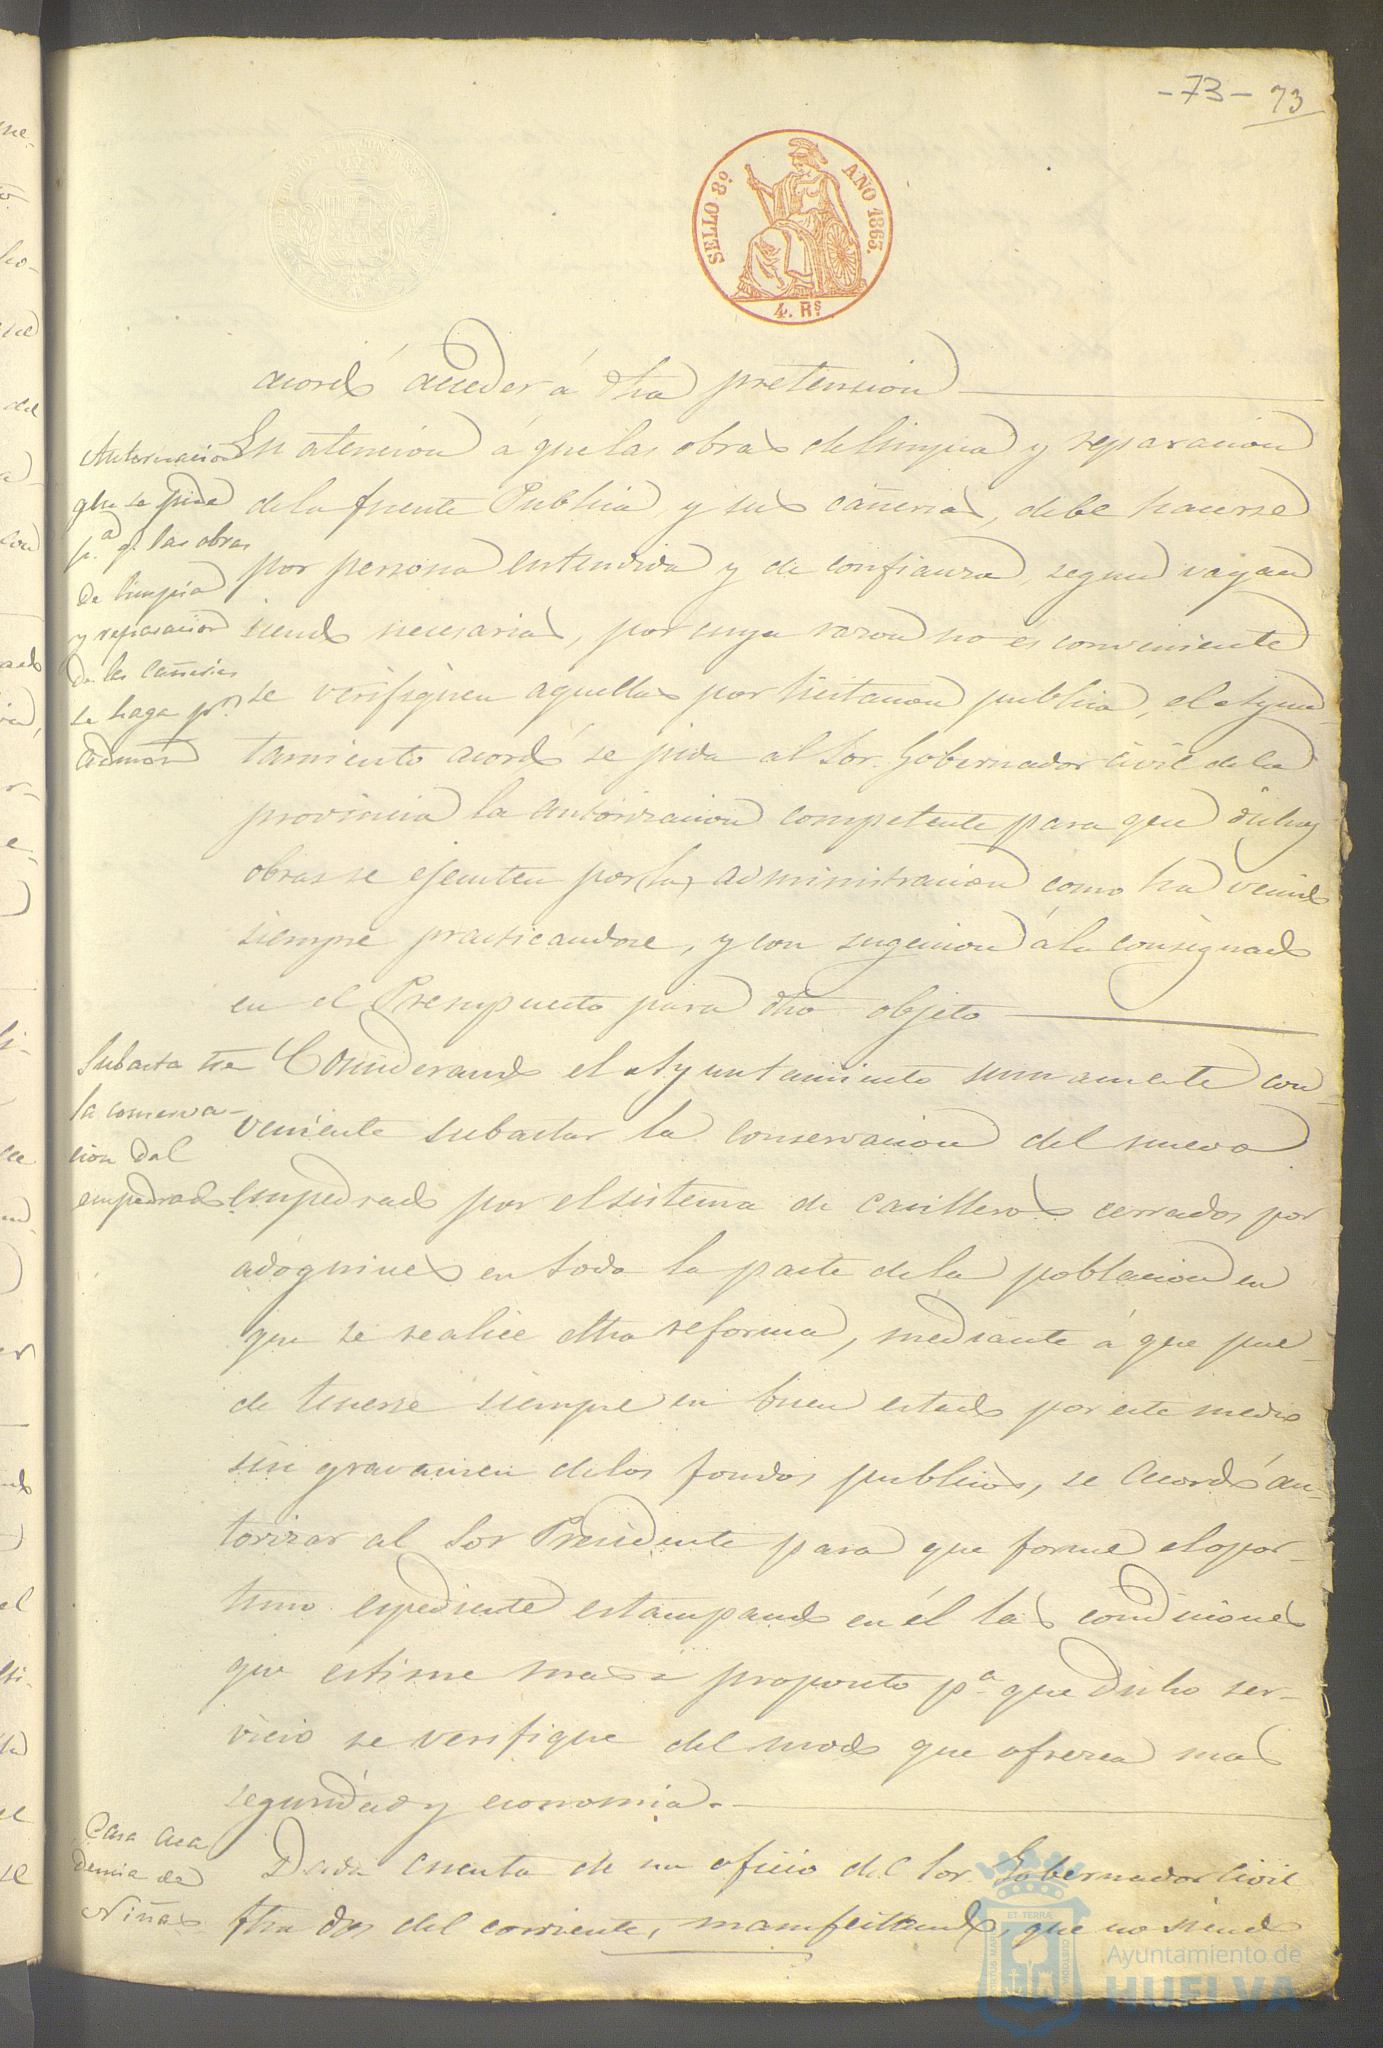 -73- 73
SELLO 8º AÑO 1865.
4. Rs
acordó acceder á dha pretension
Autorizacion
que se pide
p.a q. las obras
de limpia
y reparacion
de las cañerias
se haga pr.
admon
En atencion á que las obras de limpia y reparacion
de la fuente Publica y sus cañerias, debe hacerse
por persona entendida y de confianza, segun vayan
siendo necesarias, por cuya razon no es conveniente
se verifiquen aquellas por licitacion publica, el Ayun-
tamiento acordó se pida al Sor. Gobernador civil de la
provincia la autorizacion competente para que dichas
obras se ejecuten por la administracion como ha venido
siempre practicandose, y con sugecion á lo consignado
en el Presupuesto para dho objeto
Subasta de
la conserva-
cion del
empedrado
Considerando el Ayuntamiento sumamente con-
veniente subastar la conservacion del nuevo
empedrado por el sistema de casilleros cerrados por
adoquines en toda la parte de la poblacion en
que se realice dha reforma, mediante á que pue-
de tenerse siempre en buen estado por este medio
sin gravamen de los fondos publicos, se acordó au-
torizar al Sor Presidente para que forme el opor-
tuno espediente estampando en él las condiciones
que estime mas á proposito p.a que dicho ser-
vicio se verifique del modo que ofrezca mas
seguridad y economia.
Casa aca
demia de
Niñas
Dada cuenta de un oficio del Sor. Gobernador Civil
fha dos del corriente, manifestando, que no siendo
Ayuntamiento de
HUELVA